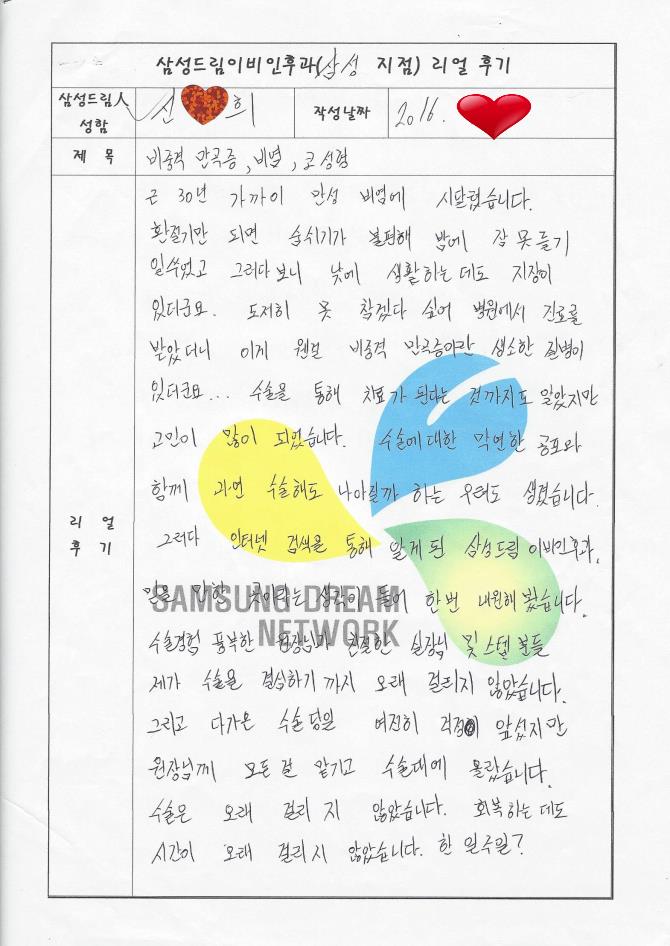 삼성드림이비인후과(삼성 지점) 리얼 후기
삼성드림人 성함 신 희 작성날짜 2016.
제 목 비중격 만곡증, 비염, 코 성형
리 얼 후 기
근 30년 가까이 만성 비염에 시달렸습니다.
환절기만 되면 숨쉬기가 불편해 밤에 잠 못들기
일쑤였고 그러다 보니 낮에 생활하는데도 지장이
있더군요. 도저히 못 참겠다 싶어 병원에서 진료를
받았더니 이게 웬걸 비중격 만곡증이란 생소한 질병이
있더군요... 수술을 통해 치료가 된다는 것까지도 알았지만
고민이 많이 되었습니다. 수술에대한 막연한 공포와
함께 과연 수술해도 나아질까 하는 우려도 생겼습니다.
그러다 인터넷 검색을 통해 알게된 삼성드림 이비인후과.
믿을 만한 곳이라는 생각이 들어 한번 내원해 봤습니다.
SAMSUNG DREAM
NETWORK
수술경험 풍부한 원장님과 친절한 실장님 및 스텝 분들
제가 수술을 결심하기 까지 오래 걸리지 않았습니다.
그리고 다가온 수술당일 여전히 걱정이 앞섰지만
원장님께 모든걸 맡기고 수술대에 올랐습니다.
수술은 오래 걸리지 않았습니다. 회복하는데도
시간이 오래 걸리지 않았습니다. 한 일주일?